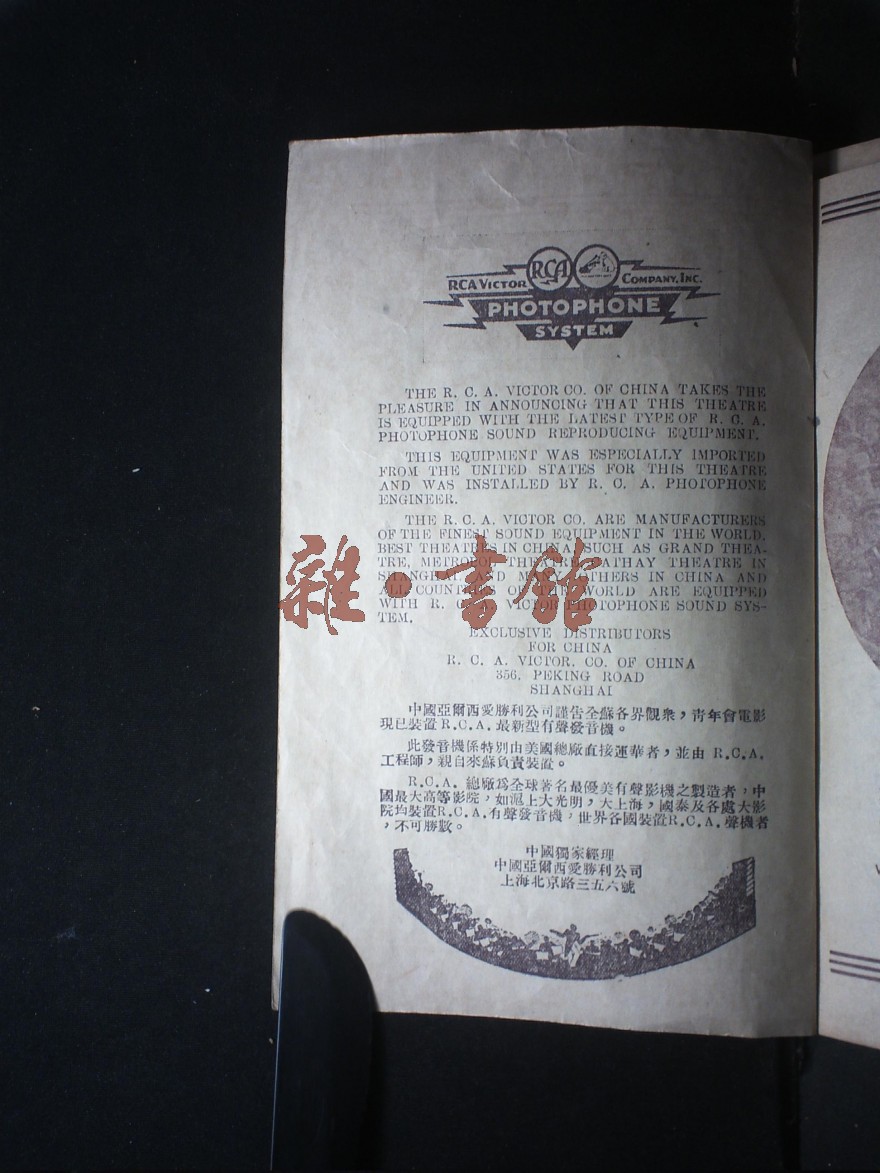 RCA VICTOR RCA COMPANY, INC.
PHOTOPHONE
SYSTEM
THE R. C. A. VICTOR CO. OF CHINA TAKES THE
PLEASURE IN ANNOUNCING THAT THIS THEATRE
IS EQUIPPED WITH THE LATEST TYPE OF R. C. A.
PHOTOPHONE SOUND REPRODUCING EQUIPMENT.
THIS EQUIPMENT WAS ESPECIALLY IMPORTED
FROM THE UNITED STATES FOR THIS THEATRE
AND WAS INSTALLED BY R. C. A. PHOTOPHONE
ENGINEER.
THE R. C. A. VICTOR CO. ARE MANUFACTURERS
OF THE FINEST SOUND EQUIPMENT IN THE WORLD.
BEST THEATRES IN CHINA, SUCH AS GRAND THEA-
TRE, METROPOL THEATRE, CATHAY THEATRE IN
SHANGHAI AND MANY OTHERS IN CHINA AND
ALL COUNTRIES OF THE WORLD ARE EQUIPPED
WITH R. C. A. VICTOR PHOTOPHONE SOUND SYS-
TEM.
雜·書館
EXCLUSIVE DISTRIBUTORS
FOR CHINA
R. C. A. VICTOR. CO. OF CHINA
356, PEKING ROAD
SHANGHAI
中國亞爾西愛勝利公司謹告全蘇各界觀衆，靑年會電影
現已裝置R.C.A.最新型有聲發音機。
此發音機係特別由美國總廠直接運華者，並由 R.C.A.
工程師，親自來蘇負責裝置。
R.C.A. 總廠爲全球著名最優美有聲影機之製造者，中
國最大高等影院，如滬上大光明，大上海，國泰及各處大影
院均裝置R.C.A.有聲發音機，世界各國裝置R.C.A.聲機者
，不可勝數。
中國獨家經理
中國亞爾西愛勝利公司
上海北京路三五六號